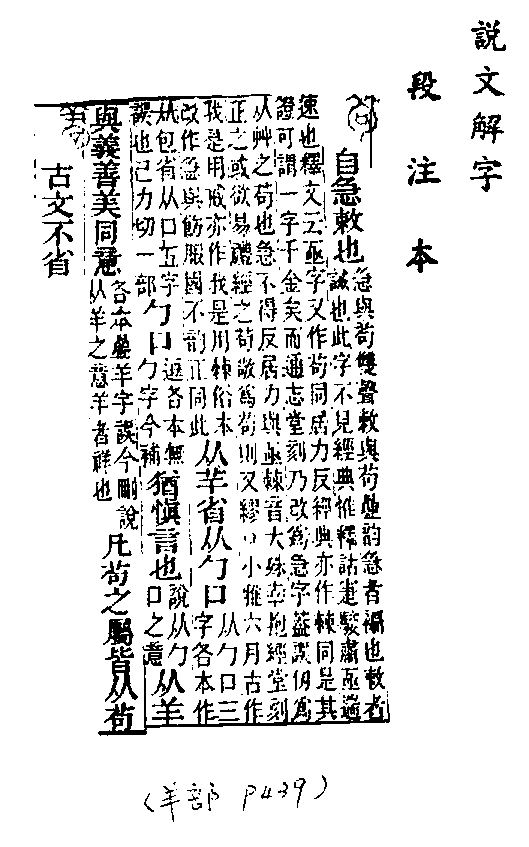 說文解字
段注本
自急敕也急與茍雙聲敕與茍疊韵急者褊也敕者
誡也此字不見經典惟釋詁寁駿肅亟遄
速也釋文云亟字又作茍同居力反經典亦作棘同是其
證可謂一字千金矣而通志堂刻乃改為急字葢誤仞為
从艸之苟也急不得反居力與亟棘音大殊幸抱經堂刻
正之或欲易禮經之苟敬為茍則又繆小雅六月古作
我是用戒亦作我是用棘俗本
改作急與飭服國不韵正同此
从羊省从勹口从勹口三
字各本作
从包省从口五字
誤也己力切一部
勹口逗各本無
勹字今補
猶慎言也說从勹
口之意
从羊
與義善美同意各本羊字誤今刪說
从羊之意羊者祥也
凡茍之屬皆从茍
古文不省
(羊部 P439)